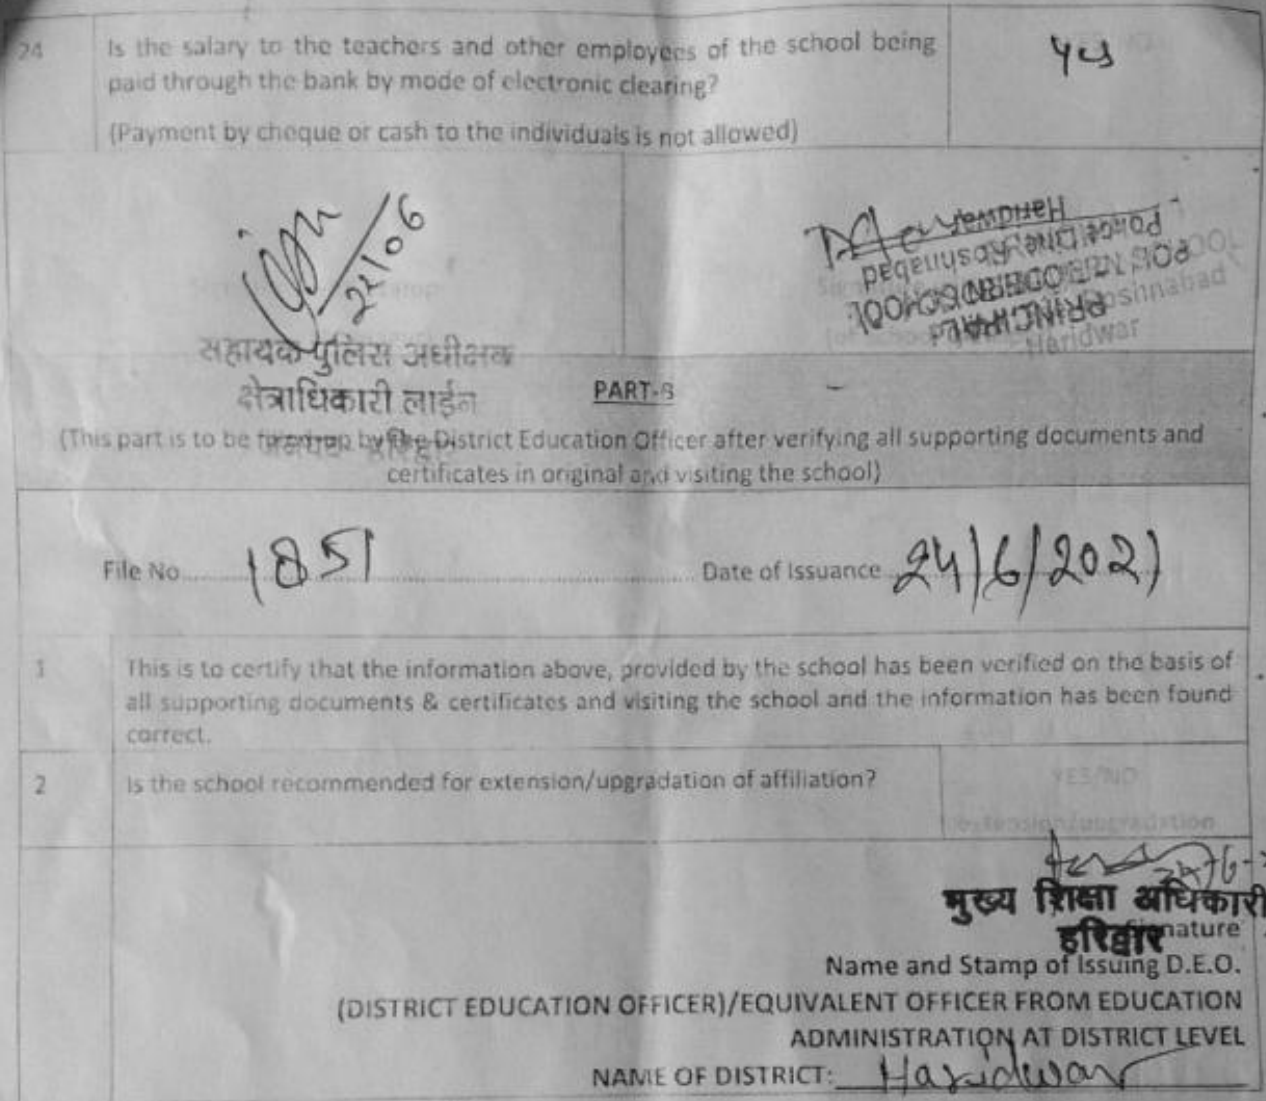 24
Is the salary to the teachers and other employees of the school being
paid through the bank by mode of electronic clearing?
(Payment by cheque or cash to the individuals is not allowed)
Yes
22/06
सहायक पुलिस अधीक्षक
क्षेत्राधिकारी लाईन
Haridwar
Police Line, Roshnabad
PRINCIPAL
Roshnabad
Haridwar
PART-B
(This part is to be by the District Education Officer after verifying all supporting documents and
certificates in original and visiting the school)
File No. 1851
Date of Issuance 24/6/2021
1
This is to certify that the information above, provided by the school has been verified on the basis of
all supporting documents & certificates and visiting the school and the information has been found
correct.
2
Is the school recommended for extension/upgradation of affiliation?
YES/NO
extension/upgradation
24-6-
मुख्य शिक्षा अधिकारी
हरिद्वार
Signature
Name and Stamp of Issuing D.E.O.
(DISTRICT EDUCATION OFFICER)/EQUIVALENT OFFICER FROM EDUCATION
ADMINISTRATION AT DISTRICT LEVEL
NAME OF DISTRICT: Haridwar